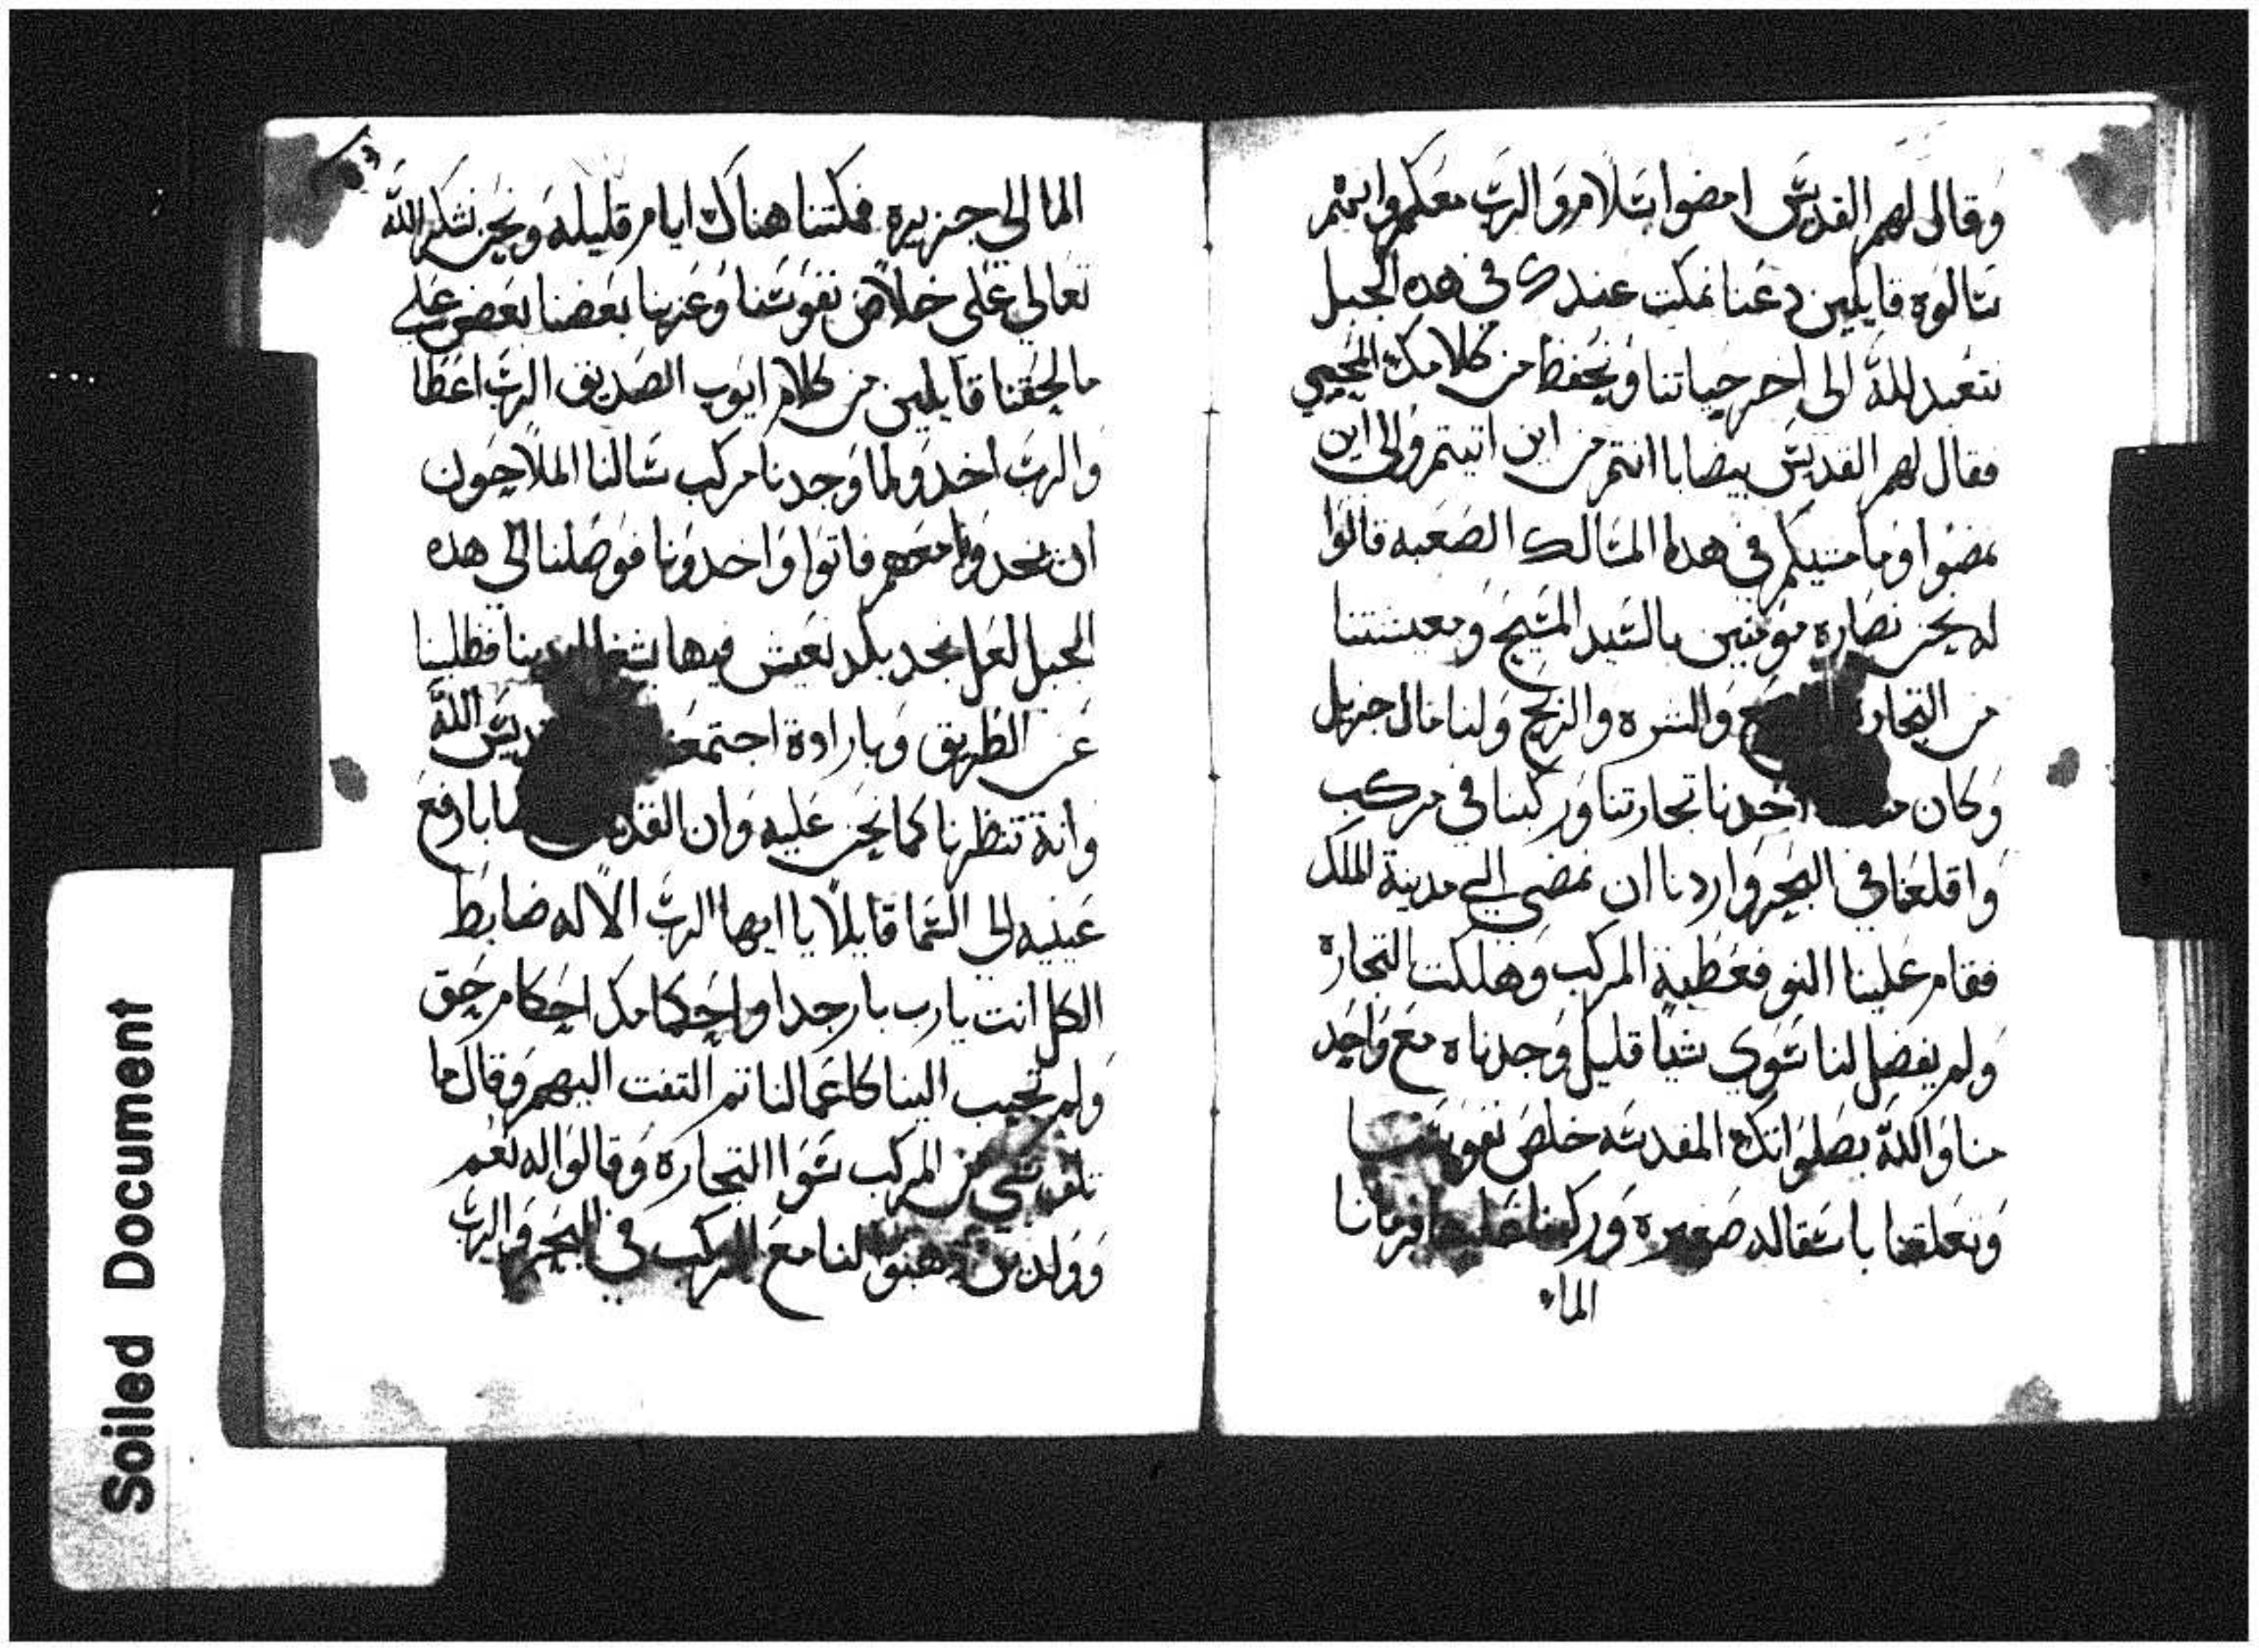 وقال لهم القديس امضوا بسلام والرب معكم وانهم
سالوه قايلين دعنا نمكت عندك في هده الجبل
نتعبد لله الى اخر حياتنا ونحفظ من كلامك المحيي
فقال لهم القديس بيصابا انتم من اين اتيتم والى اين
تمضوا وما مشيكم في هدا المسالك الصعبه قالوا
له نحن نصاره مومنين بالسيد المسيح ومعيشتنا
من التجاره والشره والربح ولنا مال جزيل
وكان اخدنا تجارتنا وركبنا في مركب
واقلعنا في البحر واردنا ان نمضي الي مدينة الملك
فقام علينا النو فعطبة المركب وهلكت التجارة
ولم يفضل لنا سوى شيا قليل وجدناه مع واحد
منا والله بصلواتك المقدسه خلص نفوسنا
وتعلقنا باسقاله صغيره وركبنا عليها فرمانا
الماء
الما الى جزيره فمكتنا هناك ايام قليله ونحن نشكر الله
تعالى على خلاص نفوسنا وعزينا بعضنا بعض على
مالحقنا قايلين من كلام ايوب الصديق الرب اعطا
والرب اخد ولما وجدنا مركب سالنا الملاحون
ان نخدونا معهم فاتوا واخدونا فوصلنا الى هده
الجبل لعل نجد بلد نعيش فيها بشغل ايدينا فظلينا
عن الطريق وبارادة اجتمعنا الله
وانة تنظرنا كما نحن عليه وان القديس بيصابا رفع
عينيه الى السما قايلاً يا ايها الرب الاله ضابط
الكل انت يارب بار جدا واحكامك احكام حق
ولم تجيب الينا كاعمالنا تم التفت اليهم وقال ما
تلف شي من المركب سوا التجارة وقالوا له نعم
وولدين دهبوا لنا مع المركب في البحر والرب
Soiled Document